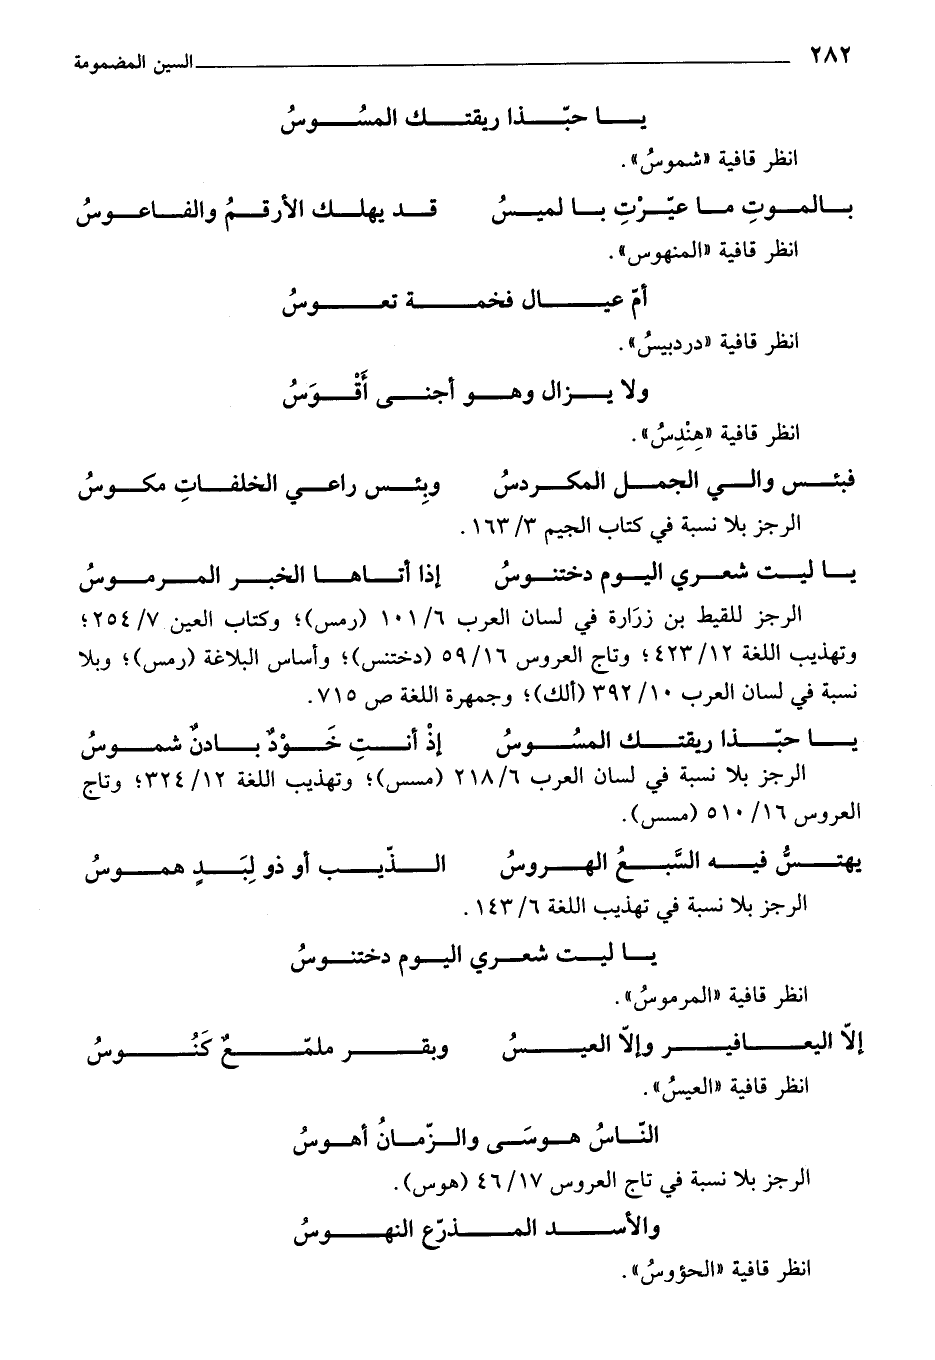 ٢٨٢ السين المضمومة
يا حبّذا ريقتك المسُوسُ
انظر قافية «شموسُ».
بالموتِ ما عيّرْتِ يا لميسُ قد يهلك الأرقمُ والفاعوسُ
انظر قافية «المنهوس».
أمّ عيال فخمة تعوسُ
انظر قافية «دردبيسُ».
ولا يزال وهو أجنى أَقْوَسُ
انظر قافية «هِنْدِسُ».
فبئس والي الجمل المكردسُ وبِئس راعي الخلفاتِ مكوسُ
الرجز بلا نسبة في كتاب الجيم ٣/ ١٦٣.
يا ليت شعري اليوم دختنوسُ إذا أتاها الخبر المرموسُ
الرجز للقيط بن زرَارة في لسان العرب ٦/ ١٠١ (رمس)؛ وكتاب العين ٧/ ٢٥٤؛
وتهذيب اللغة ١٢/ ٤٢٣؛ وتاج العروس ١٦/ ٥٩ (دختنس)؛ وأساس البلاغة (رمس)؛ وبلا
نسبة في لسان العرب ١٠/ ٣٩٢ (ألك)؛ وجمهرة اللغة ص ٧١٥.
يا حبّذا ريقتك المسُوسُ إذْ أنتِ خَوْدٌ بادنٌ شموسُ
الرجز بلا نسبة في لسان العرب ٦/ ٢١٨ (مسس)؛ وتهذيب اللغة ١٢/ ٣٢٤؛ وتاج
العروس ١٦/ ٥١٠ (مسس).
يهتسُّ فيه السَّبعُ الهروسُ الذّيب أو ذو لِبَدٍ هموسُ
الرجز بلا نسبة في تهذيب اللغة ٦/ ١٤٣.
يا ليت شعري اليوم دختنوسُ
انظر قافية «المرموسُ».
إلّا اليعافير وإلّا العيسُ وبقر ملمّعٌ كَنُوسُ
انظر قافية «العيسُ».
النّاسُ هوسَى والزّمانُ أهوسُ
الرجز بلا نسبة في تاج العروس ١٧/ ٤٦ (هوس).
والأسد المذرّع النهوسُ
انظر قافية «الحؤوسُ».